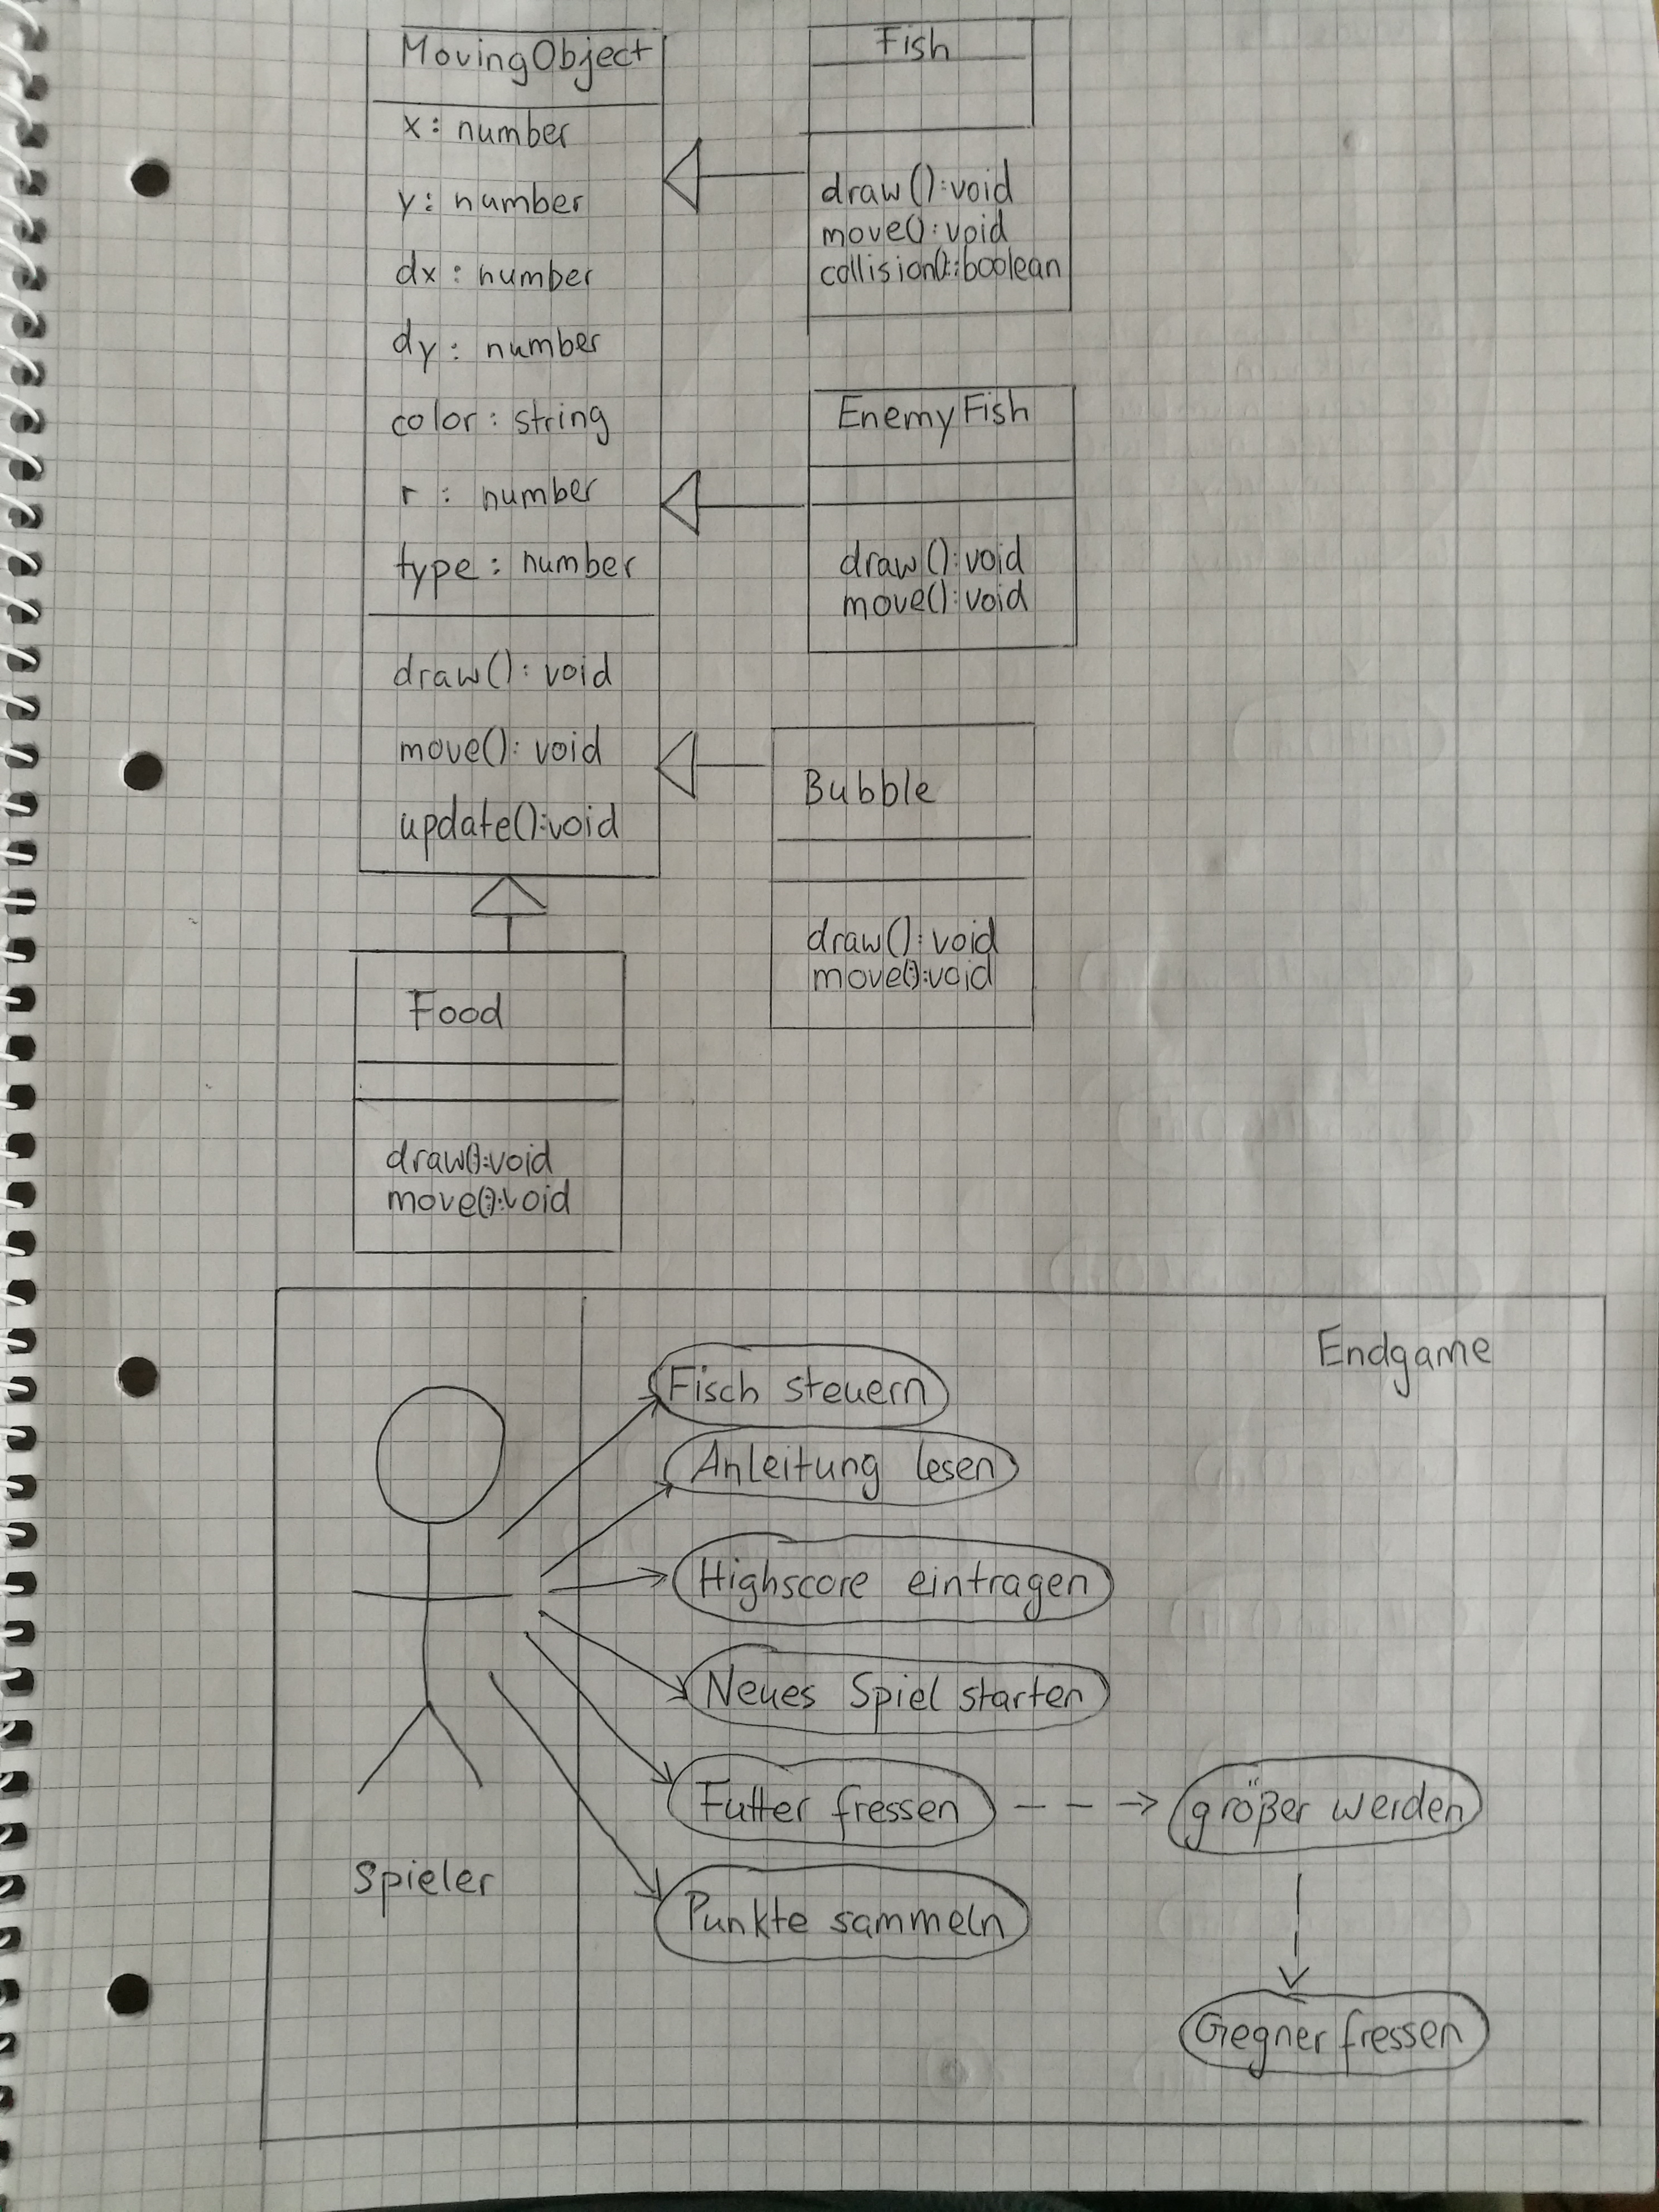 MovingObject
x: number
y: number
dx: number
dy: number
color: string
r: number
type: number
draw(): void
move(): void
update():void
Fish
draw():void
move():void
collision()::boolean
EnemyFish
draw():void
move():void
Bubble
draw():void
move():void
Food
draw():void
move():void
Endgame
Spieler
Fisch steuern
Anleitung lesen
Highscore eintragen
Neues Spiel starten
Futter fressen
größer werden
Punkte sammeln
Gegner fressen